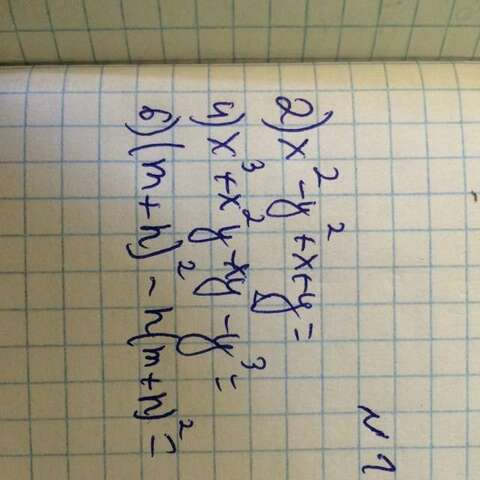 №1
2) x² - y² + x - y =
4) x³ + x²y - xy - y³ =
6) (m + n)² - n(m + n)² =